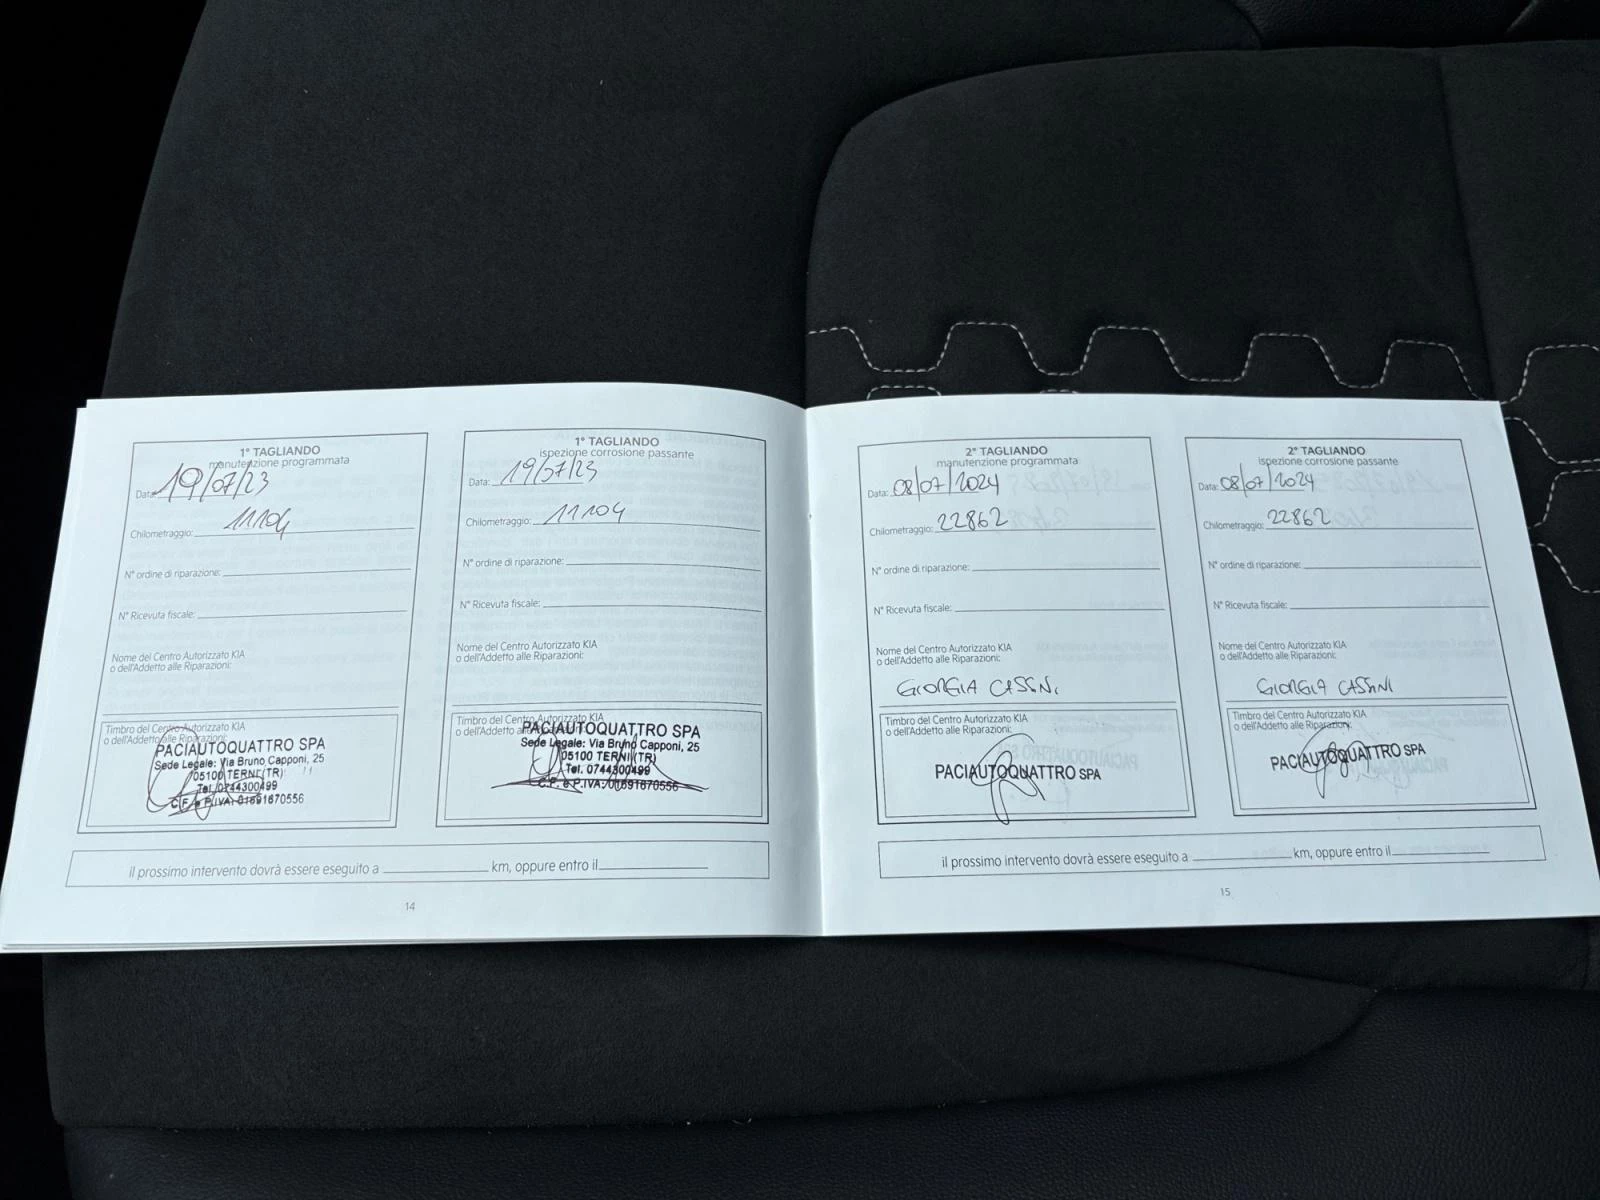 1° TAGLIANDO
manutenzione programmata
Data: 19/07/23
Chilometraggio: 11104
N° ordine di riparazione:
N° Ricevuta fiscale:
Nome del Centro Autorizzato KIA
o dell'Addetto alle Riparazioni:
Timbro del Centro Autorizzato KIA
o dell'Addetto alle Riparazioni:
PACIAUTOQUATTRO SPA
Sede Legale: Via Bruno Capponi, 25
05100 TERNI (TR)
Tel. 0744300499
C.F. e P.IVA: 01691670556
1° TAGLIANDO
ispezione corrosione passante
Data: 19/07/23
Chilometraggio: 11104
N° ordine di riparazione:
N° Ricevuta fiscale:
Nome del Centro Autorizzato KIA
o dell'Addetto alle Riparazioni:
Timbro del Centro Autorizzato KIA
o dell'Addetto alle Riparazioni:
PACIAUTOQUATTRO SPA
Sede Legale: Via Bruno Capponi, 25
05100 TERNI (TR)
Tel. 0744300499
C.F. e P.IVA: 01691670556
il prossimo intervento dovrà essere eseguito a km, oppure entro il
14
2° TAGLIANDO
manutenzione programmata
Data: 08/07/2024
Chilometraggio: 22862
N° ordine di riparazione:
N° Ricevuta fiscale:
Nome del Centro Autorizzato KIA
o dell'Addetto alle Riparazioni:
GIORGIA CASSINI
Timbro del Centro Autorizzato KIA
o dell'Addetto alle Riparazioni:
PACIAUTOQUATTRO SPA
2° TAGLIANDO
ispezione corrosione passante
Data: 08/07/2024
Chilometraggio: 22862
N° ordine di riparazione:
N° Ricevuta fiscale:
Nome del Centro Autorizzato KIA
o dell'Addetto alle Riparazioni:
GIORGIA CASSINI
Timbro del Centro Autorizzato KIA
o dell'Addetto alle Riparazioni:
PACIAUTOQUATTRO SPA
il prossimo intervento dovrà essere eseguito a km, oppure entro il
15